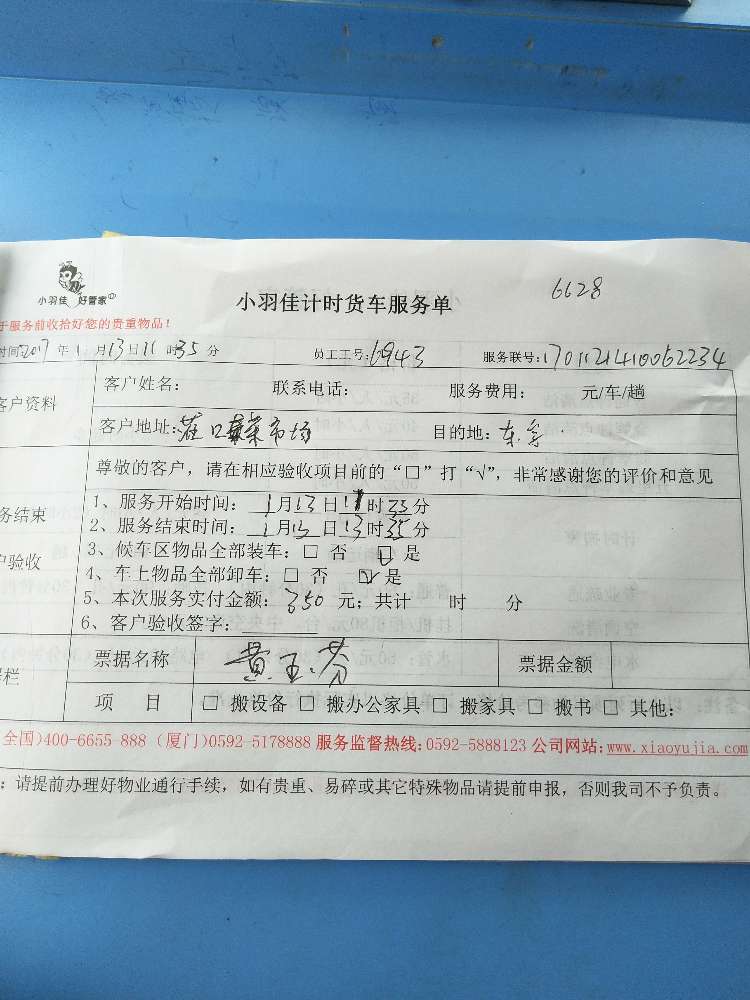 小羽佳 好管家
小羽佳计时货车服务单
6628
于服务前收拾好您的贵重物品！
时间2017年1月13日11时35分 员工工号:6943 服务联号:
客户资料
客户姓名： 联系电话： 服务费用： 元/车/趟
客户地址: 口 菜市场 目的地:东孚
尊敬的客户，请在相应验收项目前的“□”打“√”，非常感谢您的评价和意见
务结束
户验收
1、服务开始时间：1月13日11时35分
2、服务结束时间：1月13日13时35分
3、候车区物品全部装车：□ 否 ☑是
4、车上物品全部卸车：□ 否 ☑是
5、本次服务实付金额：350 元；共计 时 分
6、客户验收签字：
栏
票据名称 黄玉芬 票据金额
项 目 □ 搬设备 □ 搬办公家具 □ 搬家具 □ 搬书 □ 其他:
全国)400-6655-888 (厦门)0592-5178888 服务监督热线:0592-5888123 公司网站:www.xiaoyujia.com
：请提前办理好物业通行手续，如有贵重、易碎或其它特殊物品请提前申报，否则我司不予负责。